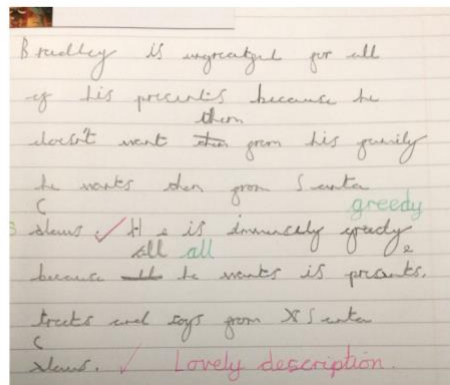 Bradley is ungreatgul for all
of his presents because he
them
doesn't want then from his family
he wants then from Santa
greedy
C
Claus. ✓ He is immensely gready,
all all
because all he wants is presents,
treets and soys from Santa
C
Claus. ✓ Lovely description.